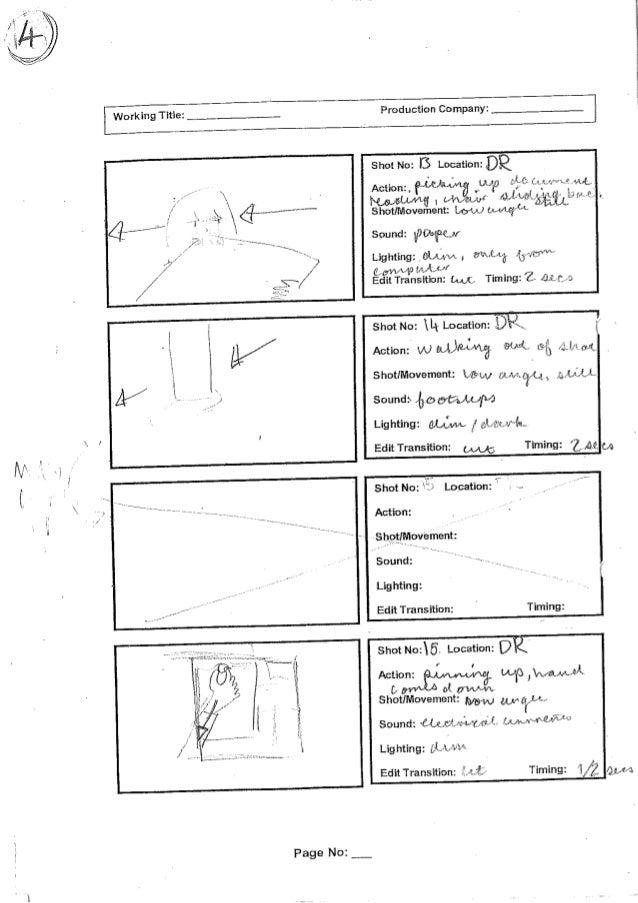 4
Working Title: ____________ Production Company: ____________
Shot No: 13 Location: DR
Action: picking up document
reading, chair sliding back.
Shot/Movement: Low angle still
Sound: paper
Lighting: dim, only from
computer
Edit Transition: cut Timing: 2 secs
Shot No: 14 Location: DR
Action: Walking out of shot
Shot/Movement: low angle, still
Sound: footsteps
Lighting: dim / dark
Edit Transition: cut Timing: 2 secs
Shot No: 15 Location:
Action:
Shot/Movement:
Sound:
Lighting:
Edit Transition: Timing:
Shot No: 15. Location: DR
Action: pinning up, hand
comes down
Shot/Movement: low angle
Sound: electrical
Lighting: dim
Edit Transition: cut Timing: 1/2 secs
Page No: ___